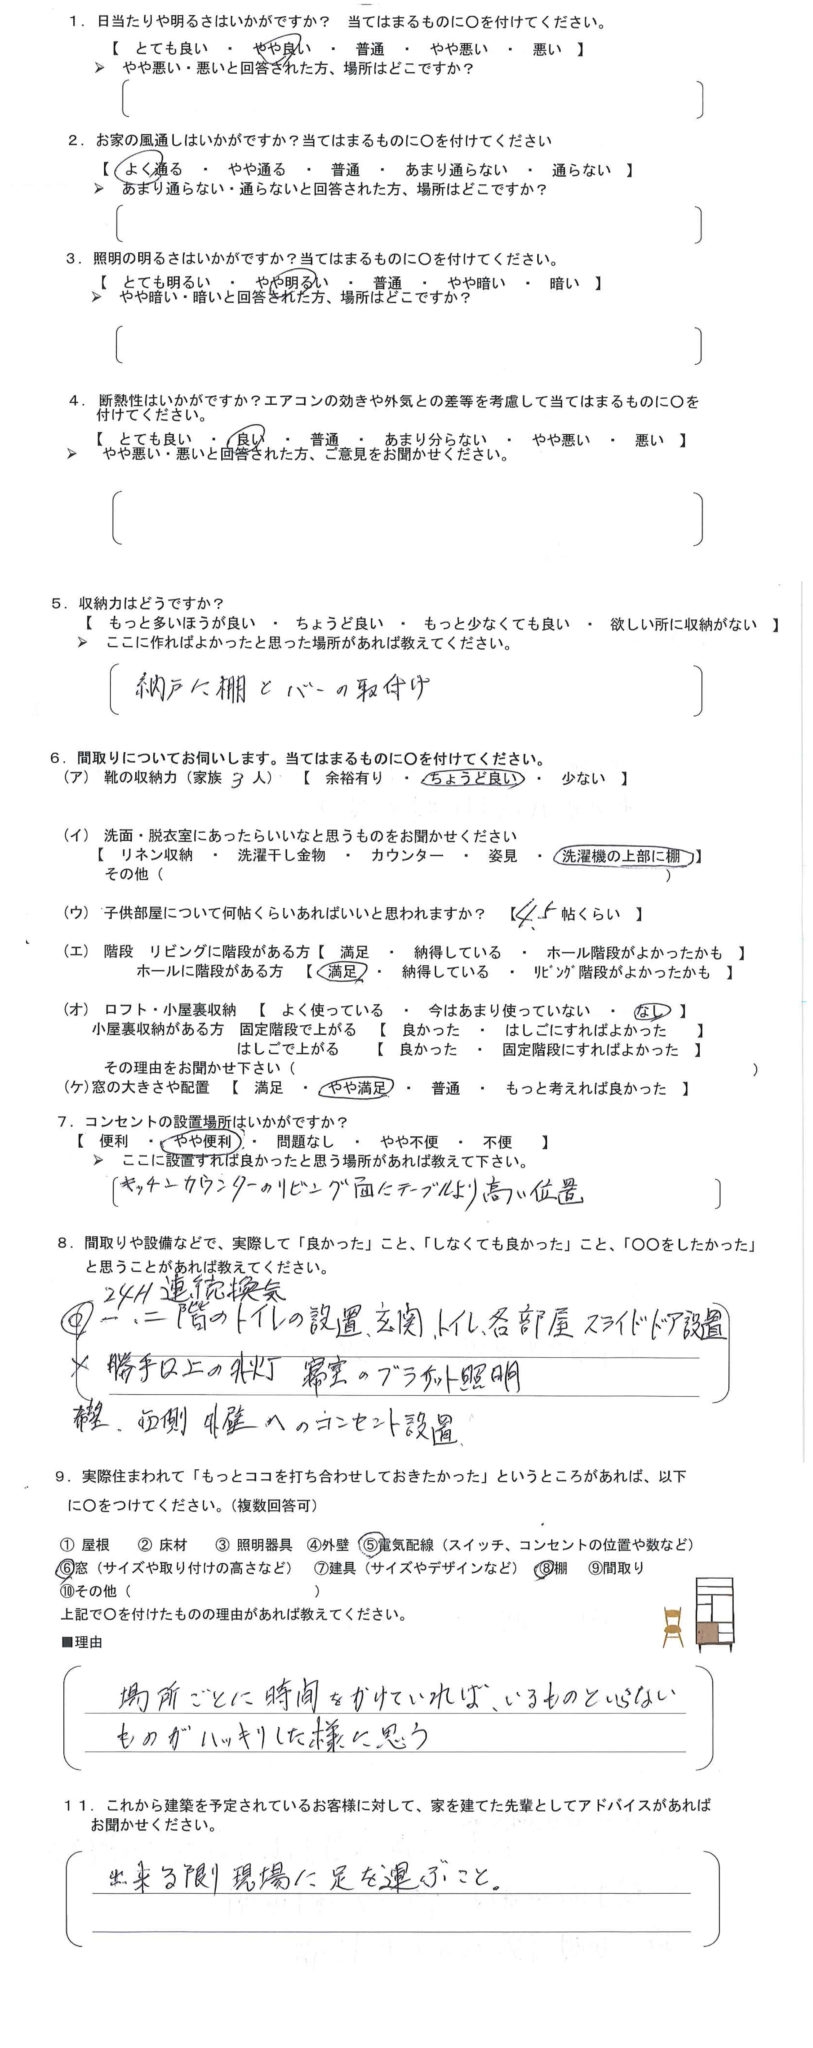 １．日当たりや明るさはいかがですか？　当てはまるものに〇を付けてください。
【　とても良い　・　やや良い　・　普通　・　やや悪い　・　悪い　】
➢　やや悪い・悪いと回答された方、場所はどこですか？
２．お家の風通しはいかがですか？当てはまるものに〇を付けてください
【　よく通る　・　やや通る　・　普通　・　あまり通らない　・　通らない　】
➢　あまり通らない・通らないと回答された方、場所はどこですか？
３．照明の明るさはいかがですか？当てはまるものに〇を付けてください。
【　とても明るい　・　やや明るい　・　普通　・　やや暗い　・　暗い　】
➢　やや暗い・暗いと回答された方、場所はどこですか？
４．断熱性はいかがですか？エアコンの効きや外気との差等を考慮して当てはまるものに〇を
付けてください。
【　とても良い　・　良い　・　普通　・　あまり分らない　・　やや悪い　・　悪い　】
➢　やや悪い・悪いと回答された方、ご意見をお聞かせください。
５．収納力はどうですか？
【　もっと多いほうが良い　・　ちょうど良い　・　もっと少なくても良い　・　欲しい所に収納がない　】
➢　ここに作ればよかったと思った場所があれば教えてください。
納戸に棚とバーの取付け
６．間取りについてお伺いします。当てはまるものに〇を付けてください。
（ア）　靴の収納力（家族 3 人）　【　余裕有り　・　ちょうど良い　・　少ない　】
（イ）　洗面・脱衣室にあったらいいなと思うものをお聞かせください
【　リネン収納　・　洗濯干し金物　・　カウンター　・　姿見　・　洗濯機の上部に棚　】
その他（　　　　　）
（ウ）　子供部屋について何帖くらいあればいいと思われますか？　【 4.5 帖くらい　】
（エ）　階段　リビングに階段がある方【　満足　・　納得している　・　ホール階段がよかったかも　】
ホールに階段がある方　【　満足　・　納得している　・　ﾘﾋﾞﾝｸﾞ階段がよかったかも　】
（オ）　ロフト・小屋裏収納　【　よく使っている　・　今はあまり使っていない　・　なし　】
小屋裏収納がある方　固定階段で上がる　【　良かった　・　はしごにすればよかった　】
はしごで上がる　【　良かった　・　固定階段にすればよかった　】
その理由をお聞かせ下さい（　　　　　）
（ケ）窓の大きさや配置　【　満足　・　やや満足　・　普通　・　もっと考えれば良かった　】
７．コンセントの設置場所はいかがですか？
【　便利　・　やや便利　・　問題なし　・　やや不便　・　不便　】
➢　ここに設置すれば良かったと思う場所があれば教えて下さい。
キッチンカウンターのリビング面にテーブルより高い位置
８．間取りや設備などで、実際して「良かった」こと、「しなくても良かった」こと、「〇〇をしたかった」
と思うことがあれば教えてください。
24H 連続換気
一、二階のトイレの設置、玄関、トイレ、各部屋 スライドドア設置
× 勝手口上の外灯　寝室のブラケット照明
希望、西側 外壁へのコンセント設置
９．実際住まわれて「もっとココを打ち合わせしておきたかった」というところがあれば、以下
に〇をつけてください。（複数回答可）
① 屋根　② 床材　③ 照明器具　④外壁　⑤電気配線（スイッチ、コンセントの位置や数など）
⑥窓（サイズや取り付けの高さなど）　⑦建具（サイズやデザインなど）　⑧棚　⑨間取り
⑩その他（　　　　　）
上記で〇を付けたものの理由があれば教えてください。
■理由
場所ごとに時間をかけていれば、いるものといらない
ものがハッキリした様に思う
１１．これから建築を予定されているお客様に対して、家を建てた先輩としてアドバイスがあれば
お聞かせください。
出来る限り現場に足を運ぶこと。